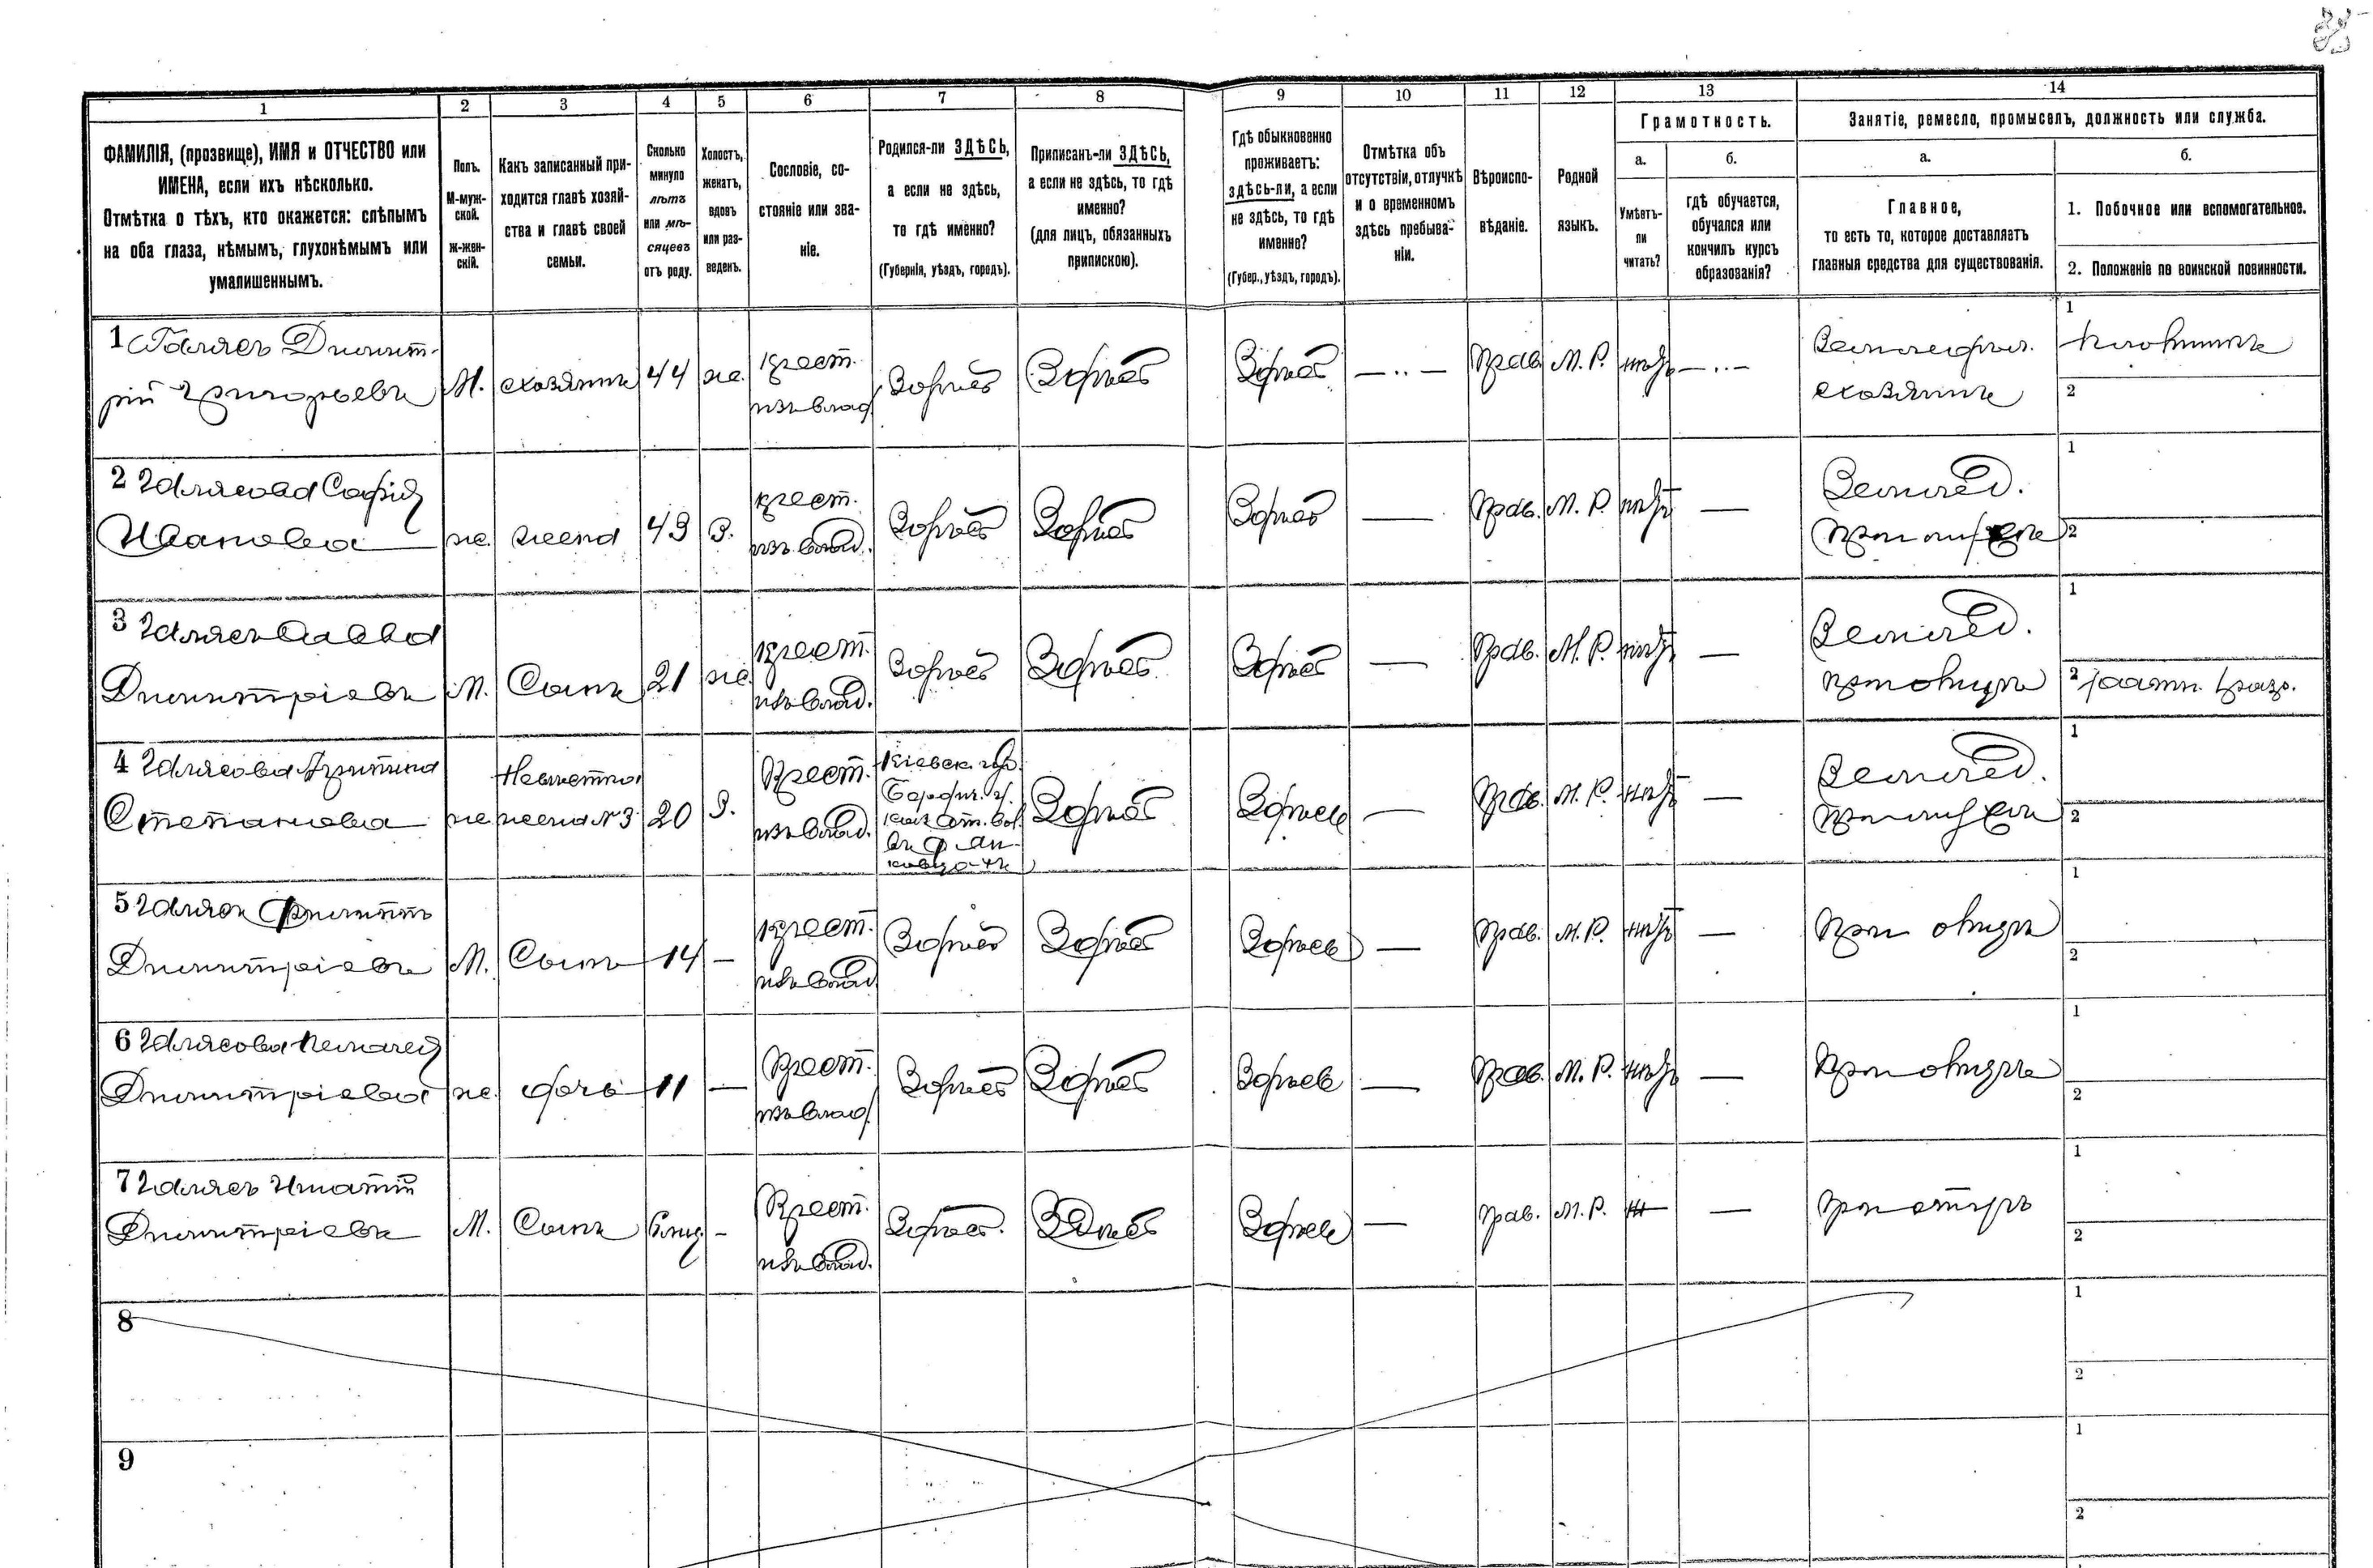 1
2
3
4
5
6
7
8
9
10
11
12
13
14
ФАМИЛІЯ, (прозвище), ИМЯ и ОТЧЕСТВО или
ИМЕНА, если ихъ нѣсколько.
Отмѣтка о тѣхъ, кто окажется: слѣпымъ
на оба глаза, нѣмымъ, глухонѣмымъ или
умалишеннымъ.
Полъ.
М-муж-
ской.
Ж-жен-
скій.
Какъ записанный при-
ходится главѣ хозяй-
ства и главѣ своей
семьи.
Сколько
минуло
лѣтъ
или мѣ-
сяцевъ
отъ роду.
Холостъ,
женатъ,
вдовъ
или раз-
веденъ.
Сословіе, со-
стояніе или зва-
ніе.
Родился-ли ЗДѢСЬ,
а если не здѣсь,
то гдѣ именно?
(Губернія, уѣздъ, городъ).
Приписанъ-ли ЗДѢСЬ,
а если не здѣсь, то гдѣ
именно?
(для лицъ, обязанныхъ
припискою).
Гдѣ обыкновенно
проживаетъ:
здѣсь-ли, а если
не здѣсь, то гдѣ
именно?
(Губер., уѣздъ, городъ).
Отмѣтка объ
отсутствіи, отлучкѣ
и о временномъ
здѣсь пребыва-
ніи.
Вѣроиспо-
вѣданіе.
Родной
языкъ.
Грамотность.
а.
Умѣетъ-
ли
читать?
б.
гдѣ обучается,
обучался или
кончилъ курсъ
образованія?
Занятіе, ремесло, промыселъ, должность или служба.
а.
Главное,
то есть то, которое доставляетъ
главныя средства для существованія.
б.
1. Побочное или вспомогательное.
2. Положеніе по воинской повинности.
1 Галясъ Дмит-
рій Григорьевъ
М. хозяинъ 44 же. крест.
изъ влад.
Здѣсь Здѣсь Здѣсь —..— Прав. М. Р. нѣтъ —..—
Земледѣл.
хозяинъ
1 плотникъ
2
2 Галясова Софія
Иванова
же. жена 43 З. крест.
изъ влад.
Здѣсь Здѣсь Здѣсь — Прав. М. Р. нѣтъ —
Землед.
при мужѣ
1
2
3 Галясъ Савва
Дмитріевъ
М. Сынъ 21 же. крест.
изъ влад.
Здѣсь Здѣсь Здѣсь — Прав. М. Р. нѣтъ —
Землед.
при отцѣ
1
2 ратн. 1 разр.
4 Галясова Христина
Степанова
же Невѣстка
жена № 3 20 З. Крест.
изъ влад.
Кіевск. губ.
Бердич. у.
Здѣсь Здѣсь — Прав. М. Р. нѣтъ —
Землед.
при мужѣ
1
2
5 Галясъ Филиппъ
Дмитріевъ
М. Сынъ 14 — крест.
изъ влад.
Здѣсь Здѣсь Здѣсь — Прав. М. Р. нѣтъ —
при отцѣ
1
2
6 Галясова Пелагея
Дмитріева
же. дочь 11 — Крест.
изъ влад.
Здѣсь Здѣсь Здѣсь — Прав. М. Р. нѣтъ —
при отцѣ
1
2
7 Галясъ Игнатій
Дмитріевъ
М. Сынъ — Крест.
изъ влад.
Здѣсь Здѣсь Здѣсь — Прав. М. Р. —
при отцѣ
1
2
8
1
2
9
1
2